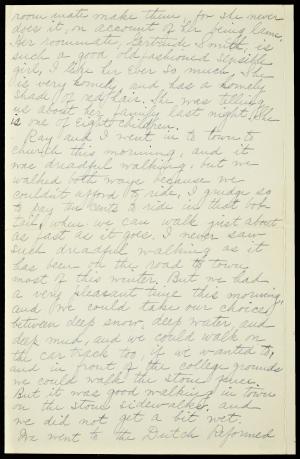 room mate make them, for she never
does it, on account of her being lame.
Her roommate, Gertrude Smith, is
such a good old fashioned sensible
girl, I like her ever so much. She
is very homely, and has a homely
shade of red hair. She was telling
us about her family last night. She
is one of eight children.
Ray and I went in to town to
church this morning, and it
was dreadful walking, but we
walked both ways because we
couldn't afford to ride. I grudge so
to pay ten cents to ride in that bob
tail, when we can walk just about
as fast as it goes. I never saw
such dreadful walking as it
has been on the road to town
most of this winter. But we had
a very pleasant time this morning,
and we could take our choice
between deep snow, deep water, and
deep mud, and we could walk on
the car track too, if we wanted to,
and in front of the college grounds
we could walk the stone fence.
But it was good walking in town
on the stone sidewalks, and
we did not get a bit wet.
We went to the Dutch Reformed